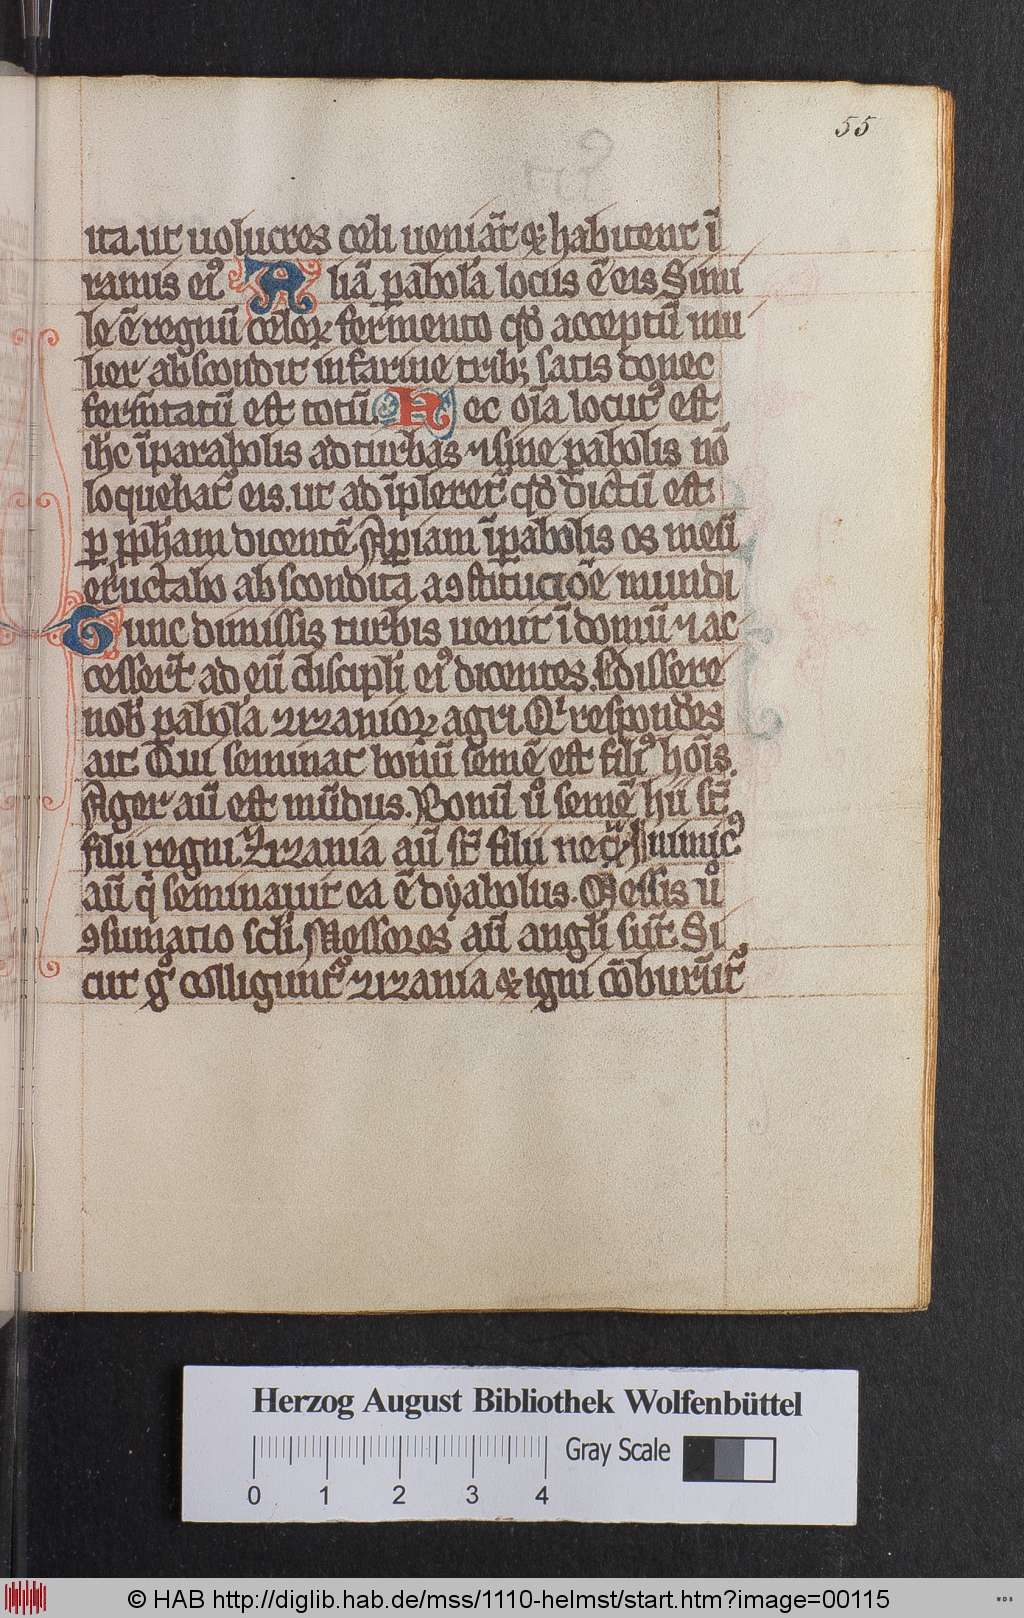 55
ita ut uolucres celi ueniāt & habitent ī
ramis eiꝰ. Aliā pabolā locus ē eis Simi
le ē regnū celoꝝ fermento qd̄ acceptū mu
lier abscondit in farine tribꝫ satis donec
fermtatū est totū. Hec oīa locutꝰ est
ih̄c īparabolis ad turbas ⁊ sine pabolis nō
loquebat᷑ eis. ut ad īpleret᷑ qd̄ dictū est
ꝑ ꝓpham dicentē Aꝑiam īpabolis os meū
eructabo abscondita a ꝯstitucioē mundi
Tunc dimissis turbis uenit ī domū ⁊ ac
cesserūt ad eū discipli eiꝰ dicentes. Edissere
nob pabolā zizanioꝝ agri Qͥ respondēs
ait. Qui seminat bonū semē est filiꝰ hoīs.
Ager aū est mūdus. Bonū uͦ semē hii st̄
filii regni. Zizania aū st̄ filii neq̄ Inimicꝰ
aū qͥ seminauit ea ē dyabolus. Messis uͦ
ꝯsumatio scli. Messores aū angli sūt. Si
cut gͦ colligunt᷑ zizania & igni cōburūt᷑
Herzog August Bibliothek Wolfenbüttel
0 1 2 3 4 Gray Scale
© HAB http://diglib.hab.de/mss/1110-helmst/start.htm?image=00115